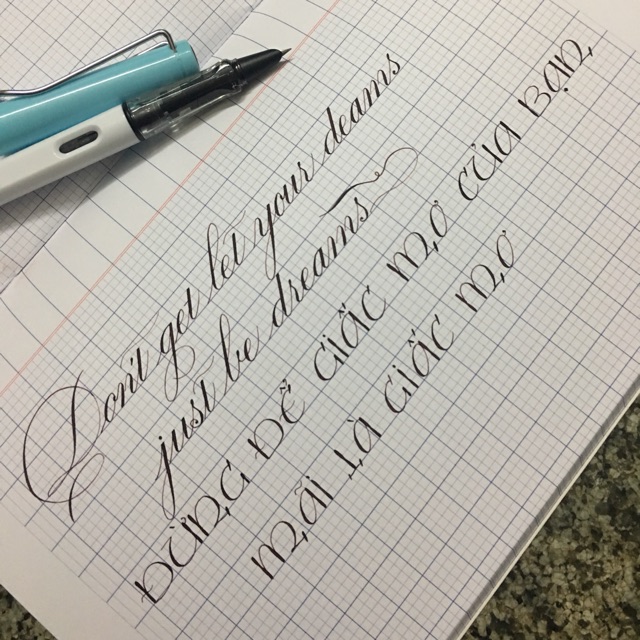 Don't get let your deams
just be dreams
ĐỪNG ĐỂ GIẤC MƠ CỦA BẠN
MÃI LÀ GIẤC MƠ